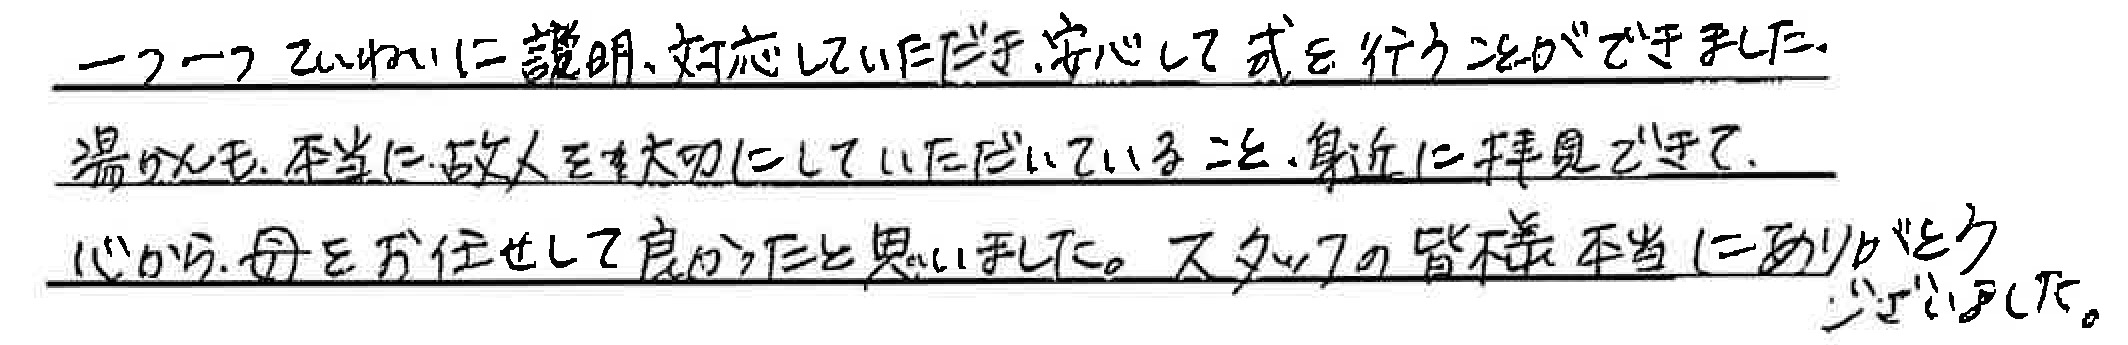 一つ一つていねいに説明、対応していただき、安心して式を行うことができました。
湯かんも、本当に、故人を大切にしていただいていること、身近に拝見できて、
心から、母をお任せして良かったと思いました。スタッフの皆様本当にありがとう
ございました。